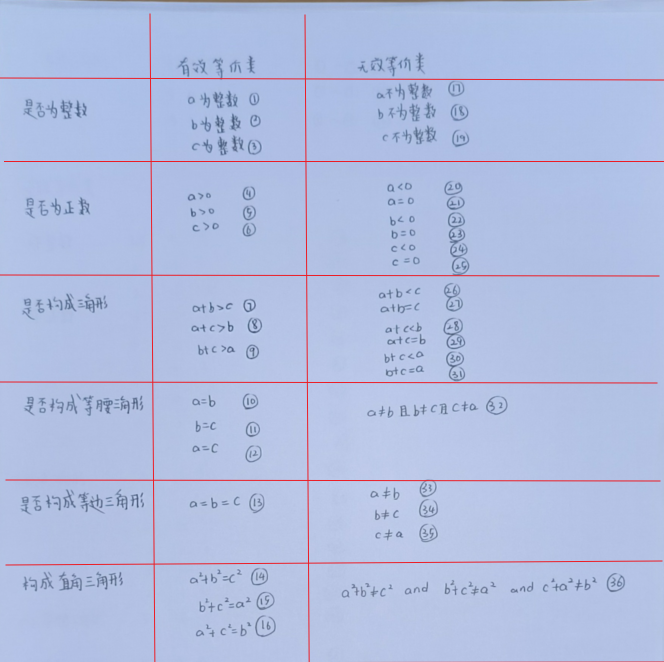 有效等价类 无效等价类
是否为整数
a为整数 ①
b为整数 ②
c为整数 ③
a不为整数 ⑰
b不为整数 ⑱
c不为整数 ⑲
是否为正数
a>0 ④
b>0 ⑤
c>0 ⑥
a<0 ⑳
a=0 ㉑
b<0 ㉒
b=0 ㉓
c<0 ㉔
c=0 ㉕
是否构成三角形
a+b>c ⑦
a+c>b ⑧
b+c>a ⑨
a+b<c ㉖
a+b=c ㉗
a+c<b ㉘
a+c=b ㉙
b+c<a ㉚
b+c=a ㉛
是否构成等腰三角形
a=b ⑩
b=c ⑪
a=c ⑫
a≠b且b≠c且c≠a ㉜
是否构成等边三角形
a=b=c ⑬
a≠b ㉝
b≠c ㉞
c≠a ㉟
构成直角三角形
a²+b²=c² ⑭
b²+c²=a² ⑮
a²+c²=b² ⑯
a²+b²≠c² and b²+c²≠a² and c²+a²≠b² ㊱